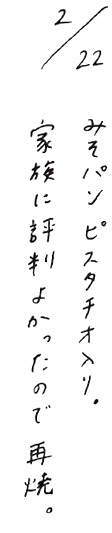 2/22
みそパン ピスタチオ入り。
家族に評判よかったので 再焼。